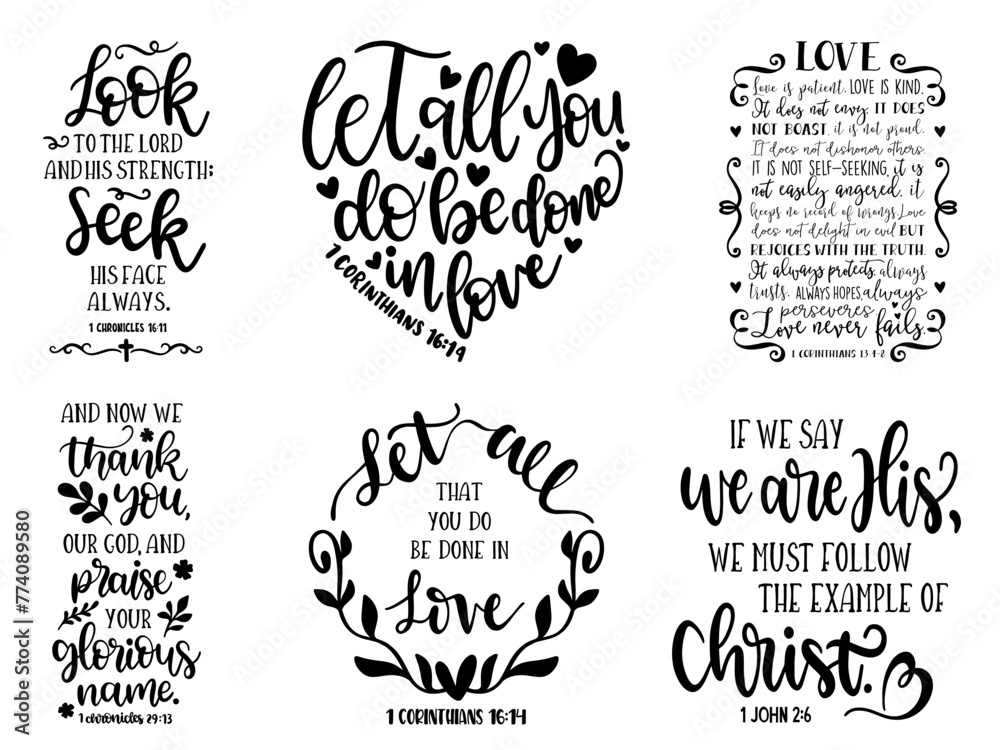 Look
TO THE LORD
AND HIS STRENGTH:
Seek
HIS FACE
ALWAYS.
1 CHRONICLES 16:11
Let all you
do be done
in love
1 CORINTHIANS 16:14
LOVE
Love is patient. LOVE IS KIND.
It does not envy. IT DOES
NOT BOAST, it is not proud.
IT does not dishonor others.
IT IS NOT SELF-SEEKING, it is
not easily angered, it
keeps no record of wrongs. Love
does not delight in evil BUT
REJOICES WITH THE TRUTH.
It always protects, always
trusts, ALWAYS HOPES, always
perseveres.
Love never fails.
1 CORINTHIANS 13:4-8
AND NOW WE
thank
you,
OUR GOD, AND
praise
YOUR
glorious
name.
1 chronicles 29:13
Let all
THAT
YOU DO
BE DONE IN
Love
1 CORINTHIANS 16:14
IF WE SAY
we are His,
WE MUST FOLLOW
THE EXAMPLE OF
Christ.
1 JOHN 2:6
Adobe Stock | #774089580
Adobe Stock